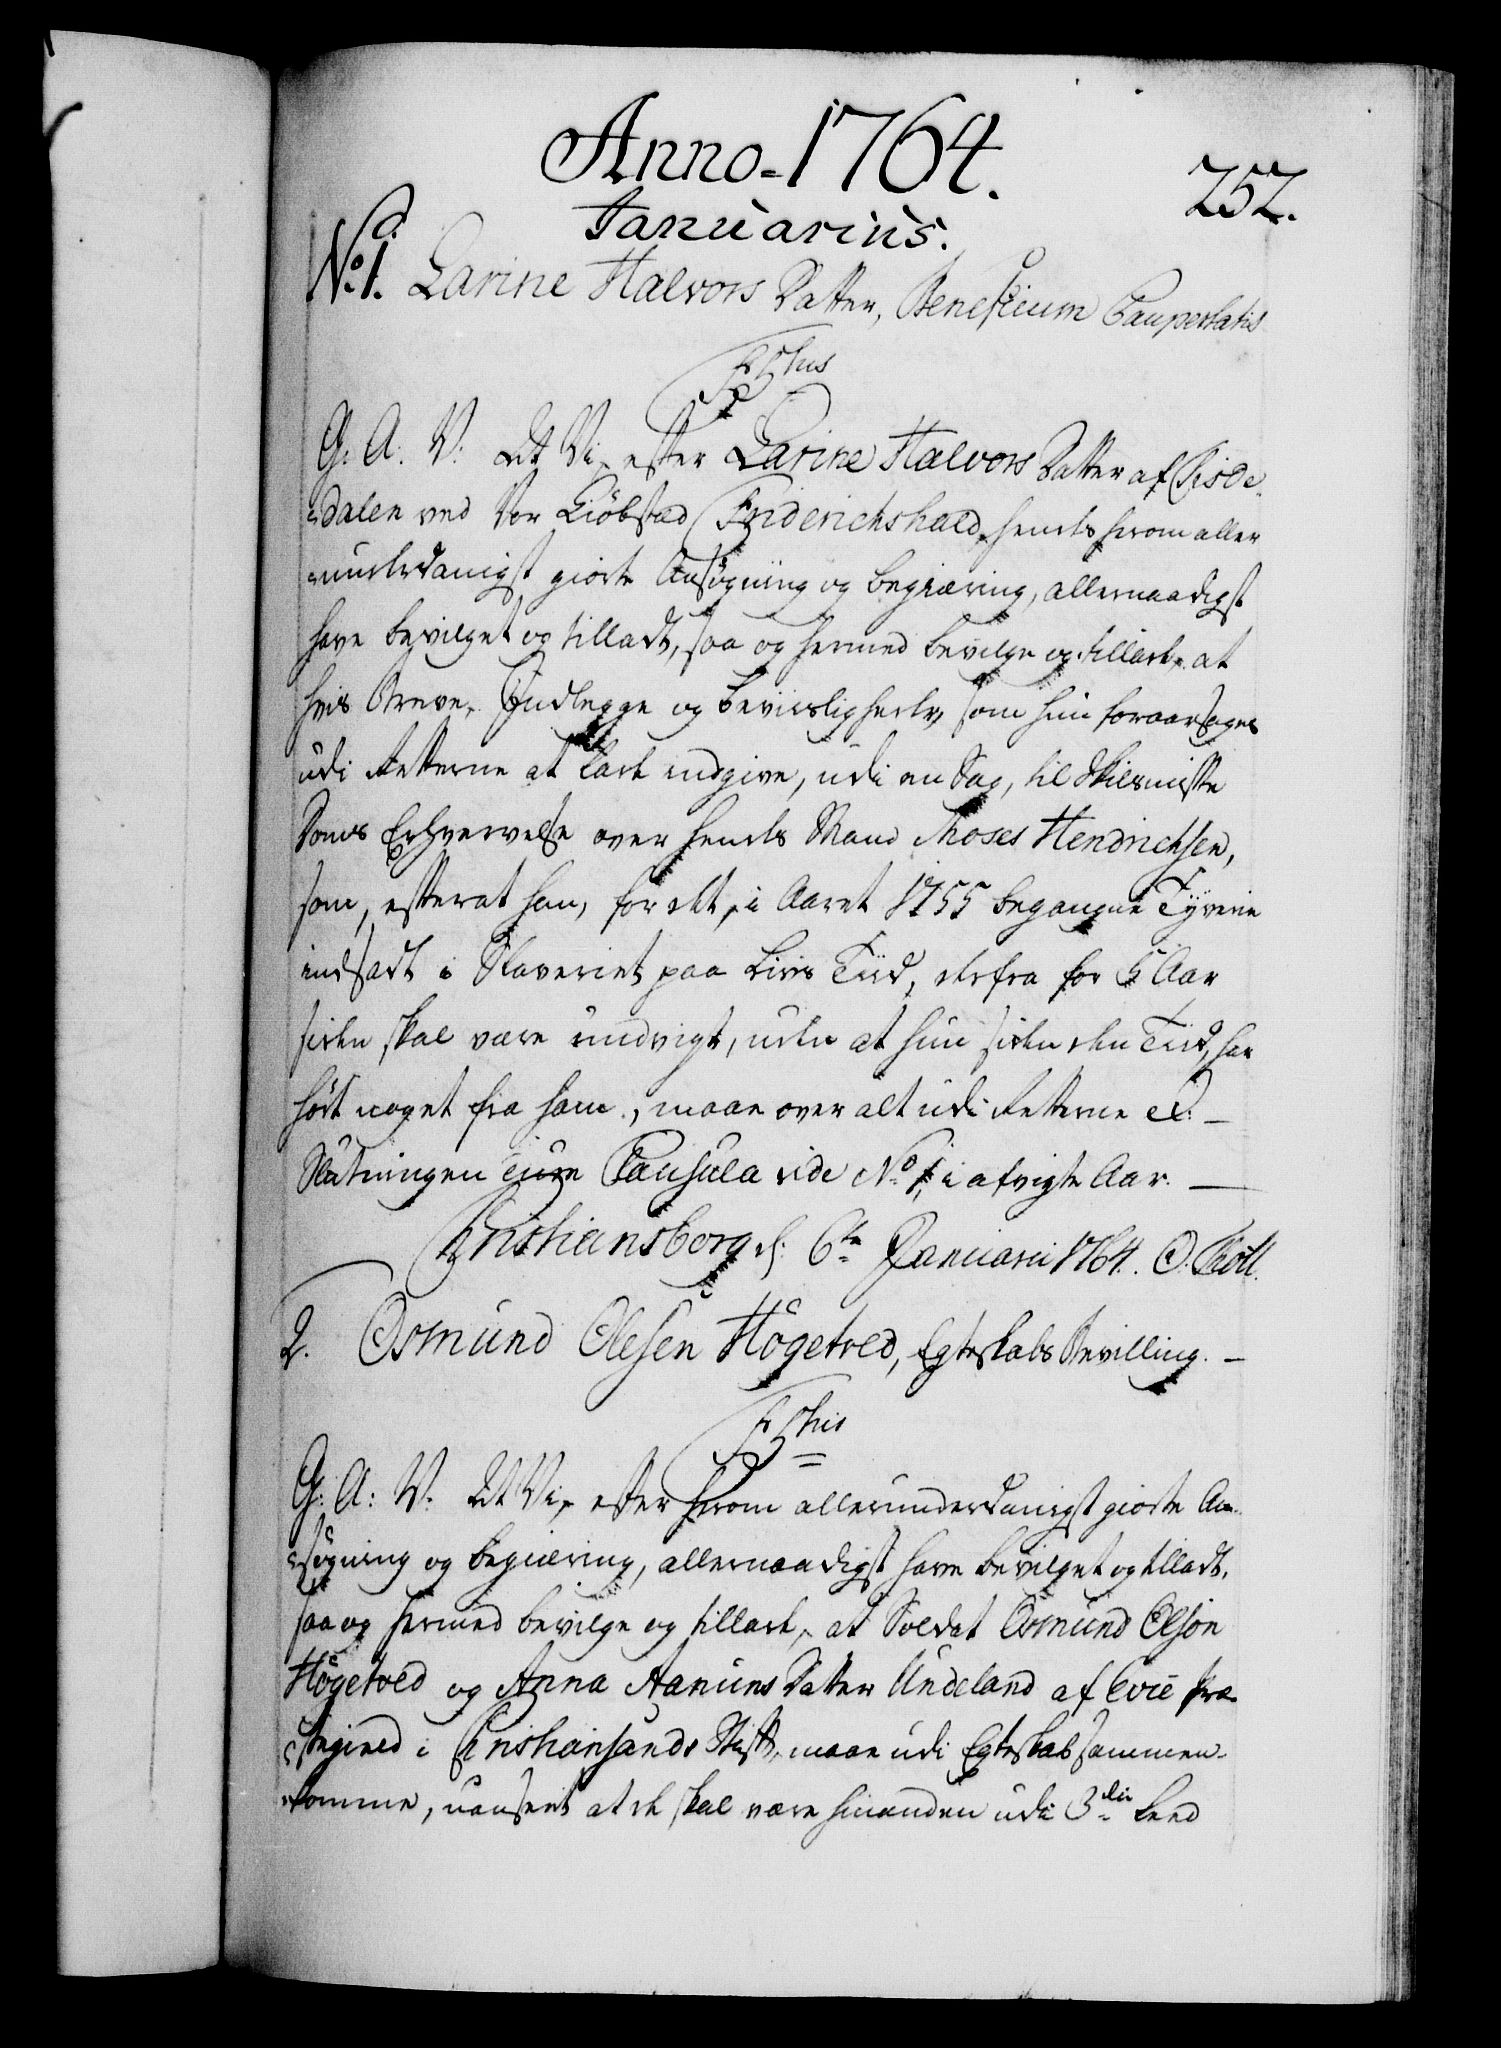 Anno 1764.
252.
Januarius.
No 1. Karine Halvors Datter, Beneficium Paupertatis
F 5thus
G: A: V: At Vi, efter Karine Halvors Datter af Tisde-
dalen ved Vor Kiöbstad Friderichshald, hendes herom aller
underdanigst giorte Ansøgning og begiæring, allernaadigst
have bevilget og tilladt, saa og hermed bevilge og tillade, at
hvis Breve, Indlegge og beviisligheder, som hun foraarsages
udi Retterne at lade indgive, udi en Sag, til Skilsmisse
Doms Erhvervelse over hendes Mand Moses Hendrichsen,
som, efterat han, for det, i Aaret 1755 begangne Tyverie
indsadt i Slaveriet paa Livs Tiid, derfra for 5 Aar
siden skal være undvigt, uden at hun siden den Tiid, har
hört noget fra ham, maae over alt udi Retterne &:
Slutningen Clausula vide No 1, i afvigte Aar.
Christiansborg d: 6te Januarii 1764. O. Thott.
2. Osmund Olesen Högetved, Egteskabs Bevilling.
F 5thus
G: A: V: At Vi, efter herom allerunderdanigst giorte An-
søgning og begiæring, allernaadigst have bevilget og tilladt,
saa og hermed bevilge og tillade, at Soldat Osmund Olsön
Högetved og Anna Aanuns Datter Undeland af Evie Præ-
stegield i Christiansands Stift, maae udi Egteskab sammen-
komme, uanseet at de skal være hinanden udi 3die Leed